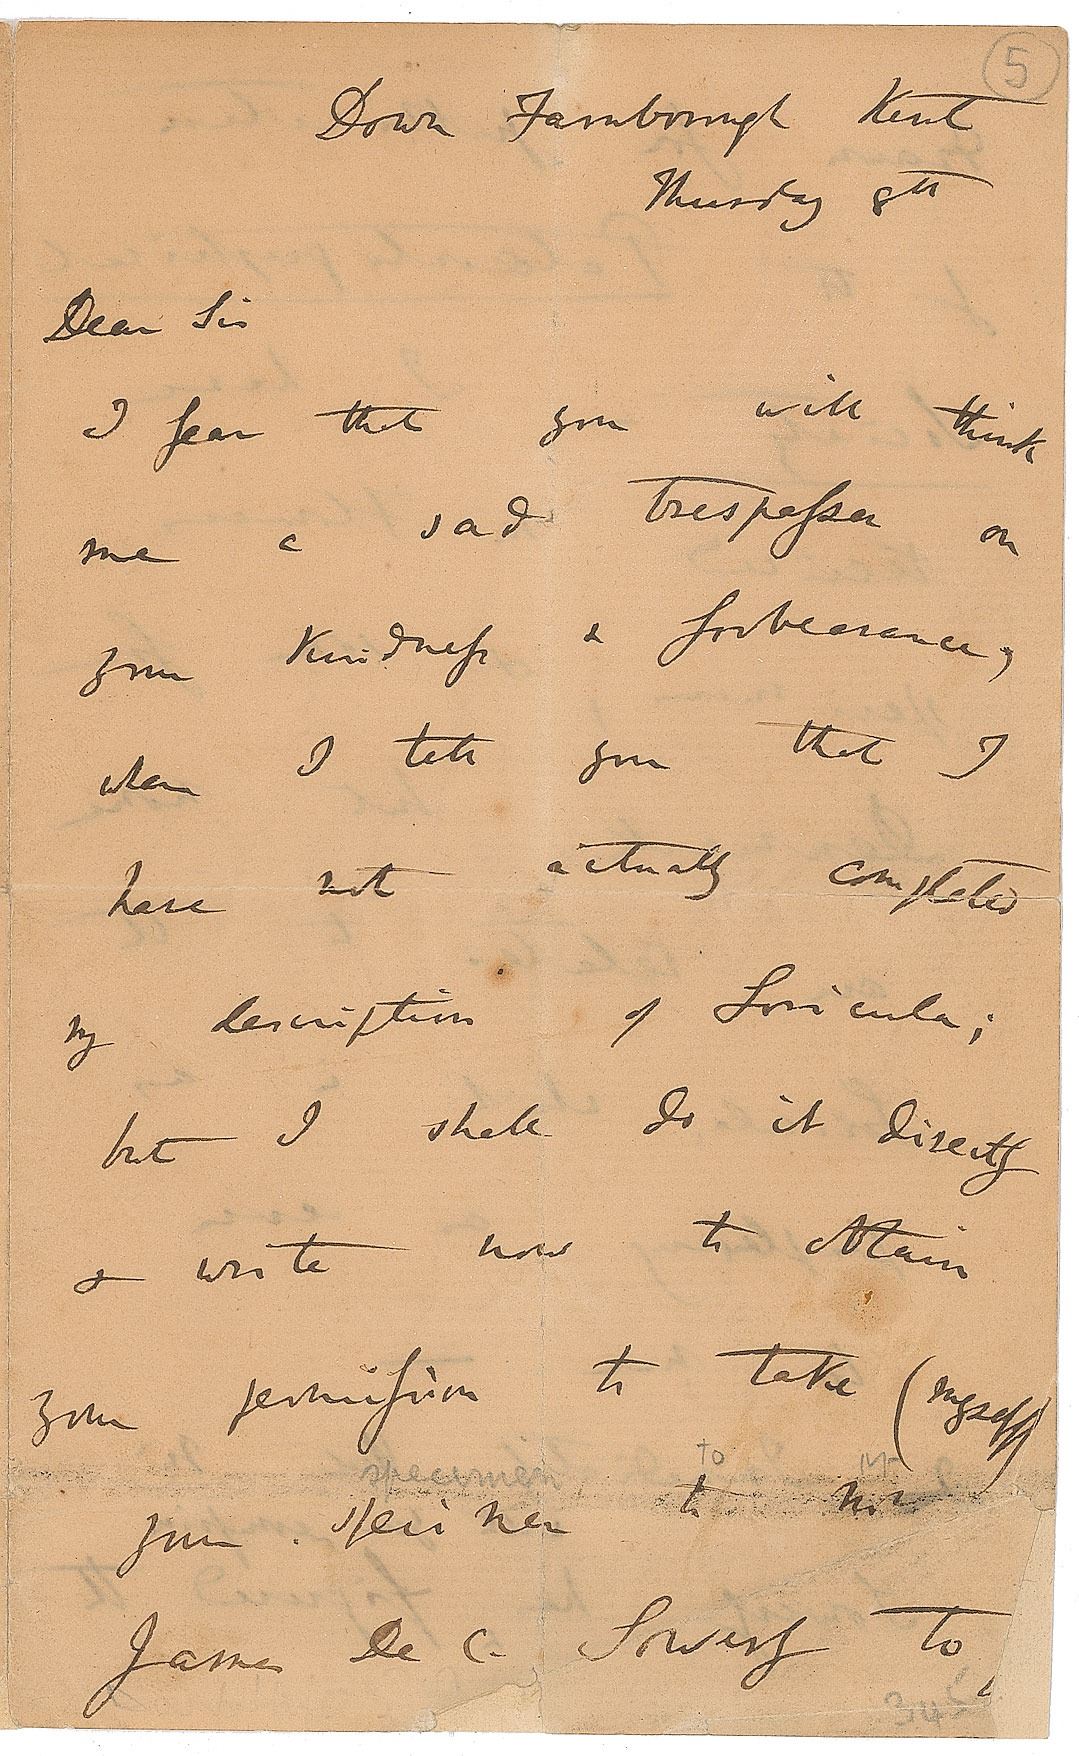 5
Down Farnborough Kent
Thursday 8th
Dear Sir
I fear that you will think
me a sad trespasser on
your kindness & forbearance,
when I tell you that I
have not actually completed
my description of Loricula;
but I shall do it directly
& write now to obtain
your permission to take (myself)
specimen to Mr
your specimen to Mr
James De C. Sowerby to